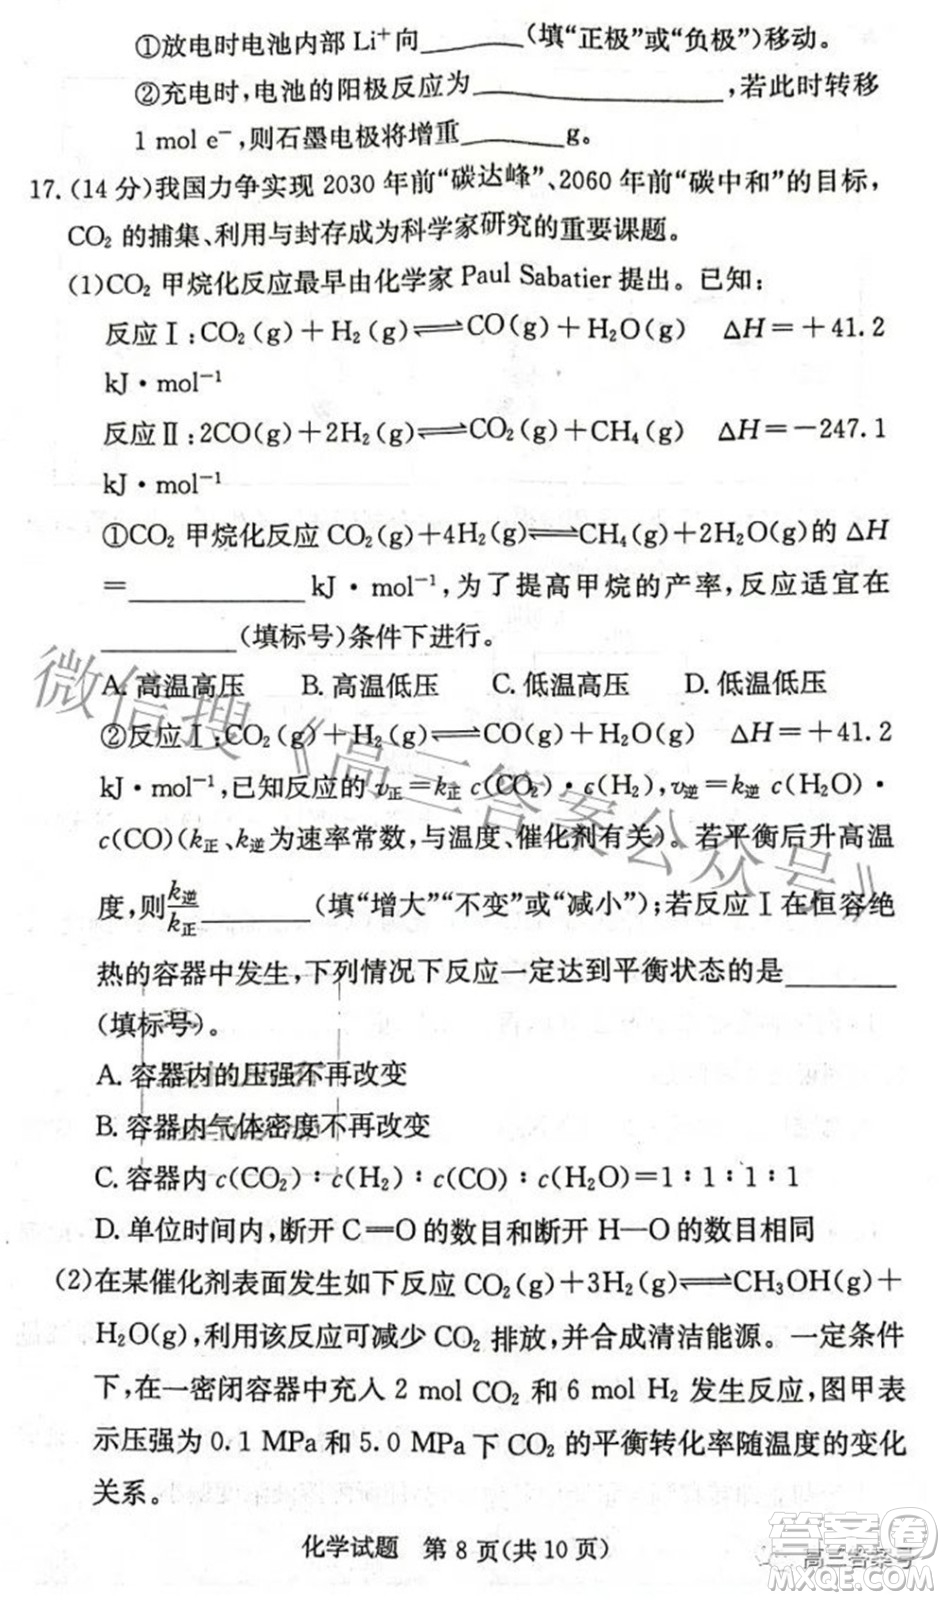 ①放电时电池内部 Li⁺向________(填“正极”或“负极”)移动。
②充电时,电池的阳极反应为____________________,若此时转移
1 mol e⁻,则石墨电极将增重________g。
17.(14 分)我国力争实现 2030 年前“碳达峰”、2060 年前“碳中和”的目标,
CO₂ 的捕集、利用与封存成为科学家研究的重要课题。
(1)CO₂ 甲烷化反应最早由化学家 Paul Sabatier 提出。已知:
反应Ⅰ:CO₂(g)+H₂(g)⇌CO(g)+H₂O(g) ΔH=+41.2
kJ·mol⁻¹
反应Ⅱ:2CO(g)+2H₂(g)⇌CO₂(g)+CH₄(g) ΔH=-247.1
kJ·mol⁻¹
①CO₂ 甲烷化反应 CO₂(g)+4H₂(g)⇌CH₄(g)+2H₂O(g)的 ΔH
=______________ kJ·mol⁻¹,为了提高甲烷的产率,反应适宜在
___________(填标号)条件下进行。
A. 高温高压 B. 高温低压 C. 低温高压 D. 低温低压
②反应Ⅰ:CO₂(g)+H₂(g)⇌CO(g)+H₂O(g) ΔH=+41.2
kJ·mol⁻¹,已知反应的 v正=k正 c(CO₂)·c(H₂),v逆=k逆 c(H₂O)·
c(CO)(k正、k逆为速率常数,与温度、催化剂有关)。若平衡后升高温
度,则k逆/k正_________(填“增大”“不变”或“减小”);若反应Ⅰ在恒容绝
热的容器中发生,下列情况下反应一定达到平衡状态的是_________
(填标号)。
A. 容器内的压强不再改变
B. 容器内气体密度不再改变
C. 容器内 c(CO₂)∶c(H₂)∶c(CO)∶c(H₂O)=1∶1∶1∶1
D. 单位时间内,断开 C=O 的数目和断开 H—O 的数目相同
(2)在某催化剂表面发生如下反应 CO₂(g)+3H₂(g)⇌CH₃OH(g)+
H₂O(g),利用该反应可减少 CO₂ 排放,并合成清洁能源。一定条件
下,在一密闭容器中充入 2 mol CO₂ 和 6 mol H₂ 发生反应,图甲表
示压强为 0.1 MPa 和 5.0 MPa 下 CO₂ 的平衡转化率随温度的变化
关系。
化学试题 第 8 页(共 10 页)
微信搜《高三答案公众号》
高三答案号
答案圈
MXQE.COM